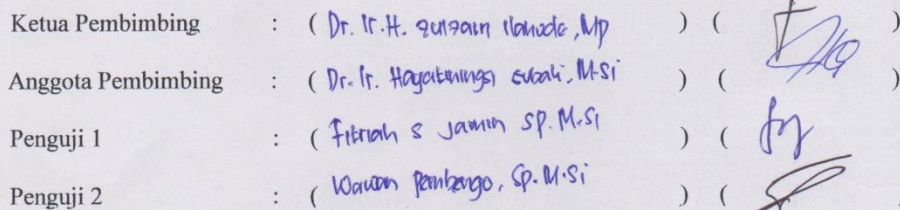 Ketua Pembimbing : ( Dr. Ir. H. Zulzain Ilahude, MP ) ( )
Anggota Pembimbing : ( Dr. Ir. Hayatiningsi Gubali, M.Si ) ( )
Penguji 1 : ( Fitriah S Jamin SP. M.Si ) ( )
Penguji 2 : ( Wawan Pembengo, SP. M.Si ) (